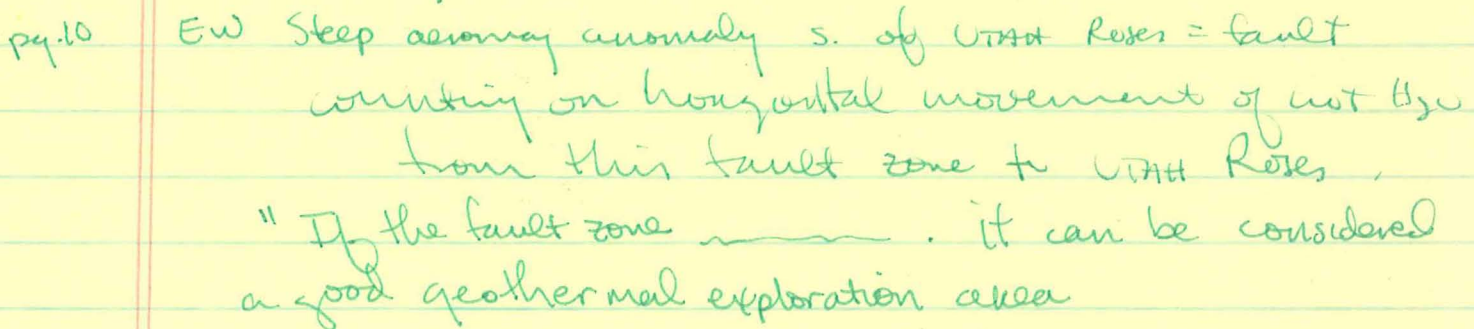 pg.10 EW Steep aeromag anomaly s. of UTAH Roses = fault
counting on horizontal movement of hot H2O
from this fault zone to UTAH Roses.
"If the fault zone ______. it can be considered
a good geothermal exploration area